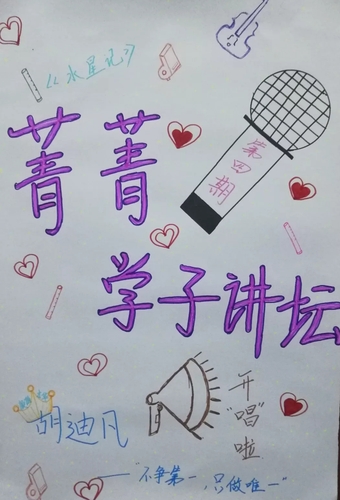 《水星记》
菁菁
第四期
学子讲坛
开
"唱"
啦
胡迪凡
——"不争第一,只做唯一"